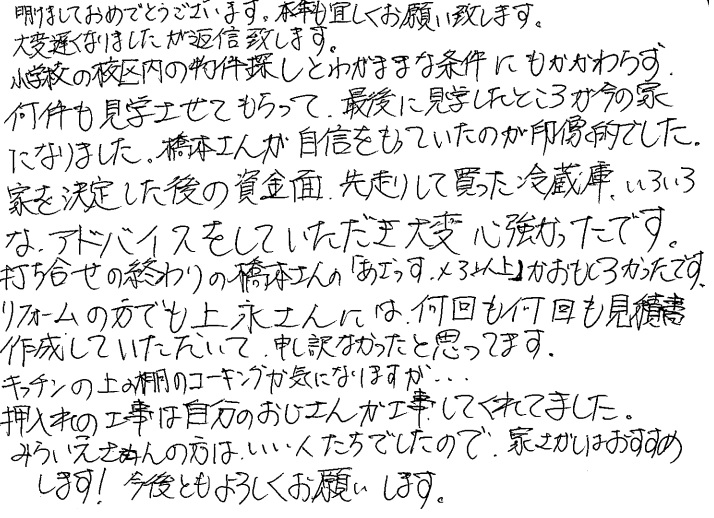 明けましておめでとうございます。本年も宜しくお願い致します。
大変遅くなりましたが返信致します。
小学校の校区内の物件探しとわがままな条件にもかかわらず、
何件も見学させてもらって、最後に見学したところが今の家
になりました。橋本さんが自信をもっていたのが印象的でした。
家を決定した後の資金面、先走りして買った冷蔵庫、いろいろ
な、アドバイスをしていただき大変心強かったです。
打ち合せの終わりの橋本さんの「あざっす。以上」がおもしろかったです。
リフォームの方でも上永さんには、何回も何回も見積書
作成していただいて、申し訳なかったと思ってます。
キッチンの上の棚のコーキングが気になりますが...
押入れの工事は自分のおじさんが工事してくれてました。
みらいえさんの方は、いい人たちでしたので、家さがしはおすすめ
します! 今後ともよろしくお願いします。